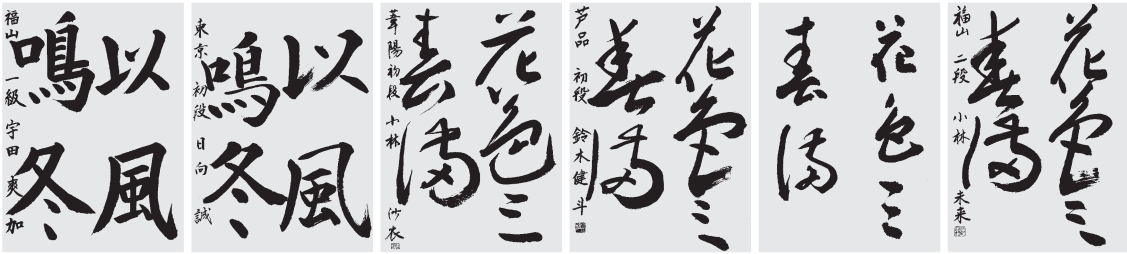 以風
鳴冬
福山 一級 宇田 爽加
以風
鳴冬
東京 初段 日向 誠
花色三
春満
葦陽 初段 小林 沙衣
花色三
春満
芦品 初段 鈴木健斗
花色三
春満
花色三
春満
福山 二段 小林 未来